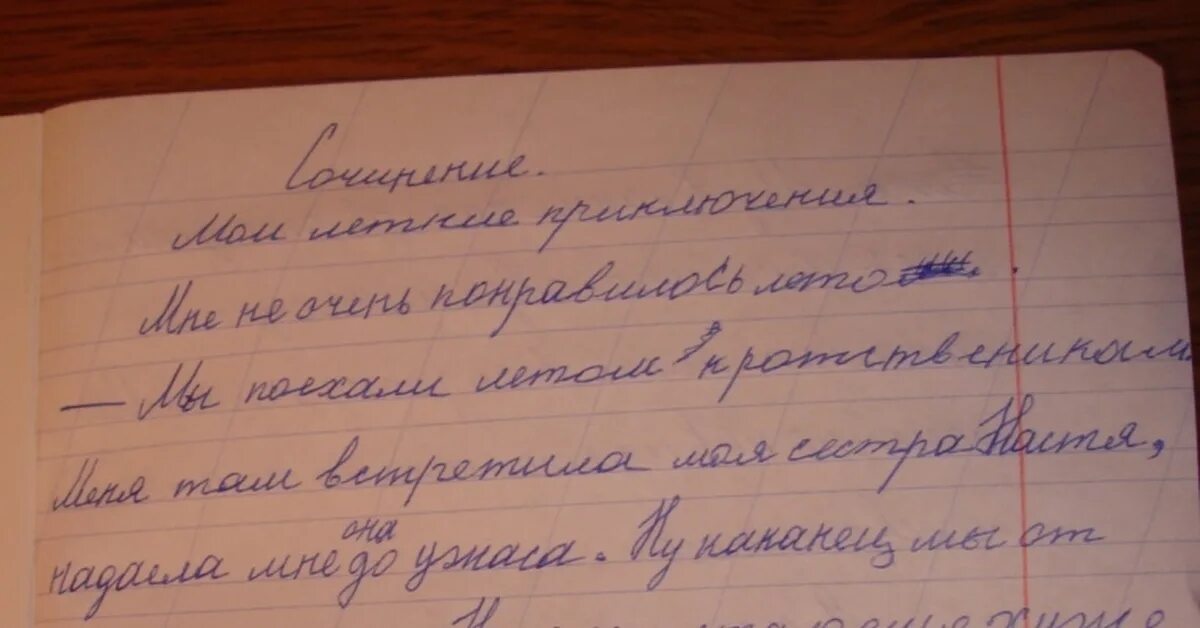 Сочинение.
Мои леткие приключения.
Мне не очень понравилось лето.
— Мы поехали летом к ротственикам
Меня там встретила моя сестра Настя,
она
надаела мне до ужаса. Ну наканец мы от